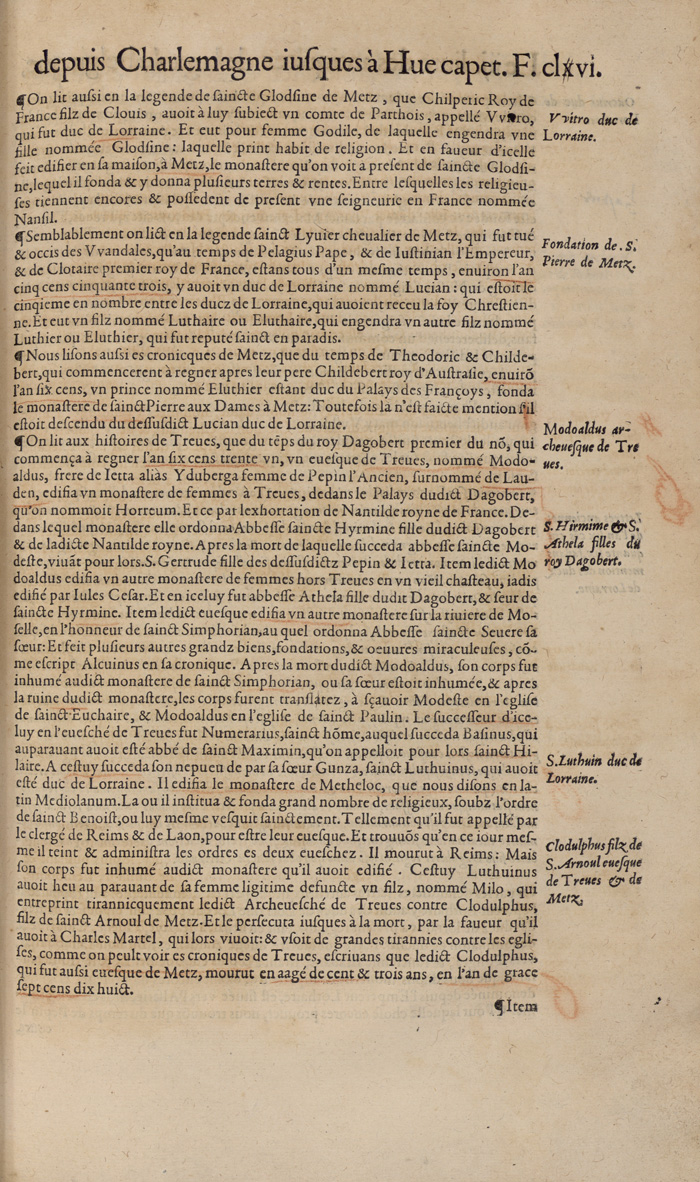 depuis Charlemagne iuſques à Hue capet. F. clxvi.
¶On lit auſsi en la legende de ſaincte Glodſine de Metz , que Chilperic Roy de
France filz de Clouis , auoit à luy ſubiect vn comte de Parthois, appellé Vvitro,
qui fut duc de Lorraine. Et eut pour femme Godile, de laquelle engendra vne
fille nommée Glodſine: laquelle print habit de religion. Et en faueur d'icelle
feit edifier en ſa maiſon, à Metz, le monaſtere qu'on voit a preſent de ſaincte Glodſi-
ne, lequel il fonda & y donna pluſieurs terres & rentes. Entre leſquelles les religieu-
ſes tiennent encores & poſſedent de preſent vne ſeigneurie en France nommée
Nanſil.
Vvitro duc de
Lorraine.
¶Semblablement on lict en la legende ſainct Lyuier cheualier de Metz, qui fut tué
& occis des Vvandales, qu'au temps de Pelagius Pape, & de Iuſtinian l'Empereur,
& de Clotaire premier roy de France, eſtans tous d'vn meſme temps , enuiron l'an
cinq cens cinquante trois, y auoit vn duc de Lorraine nommé Lucian : qui eſtoit le
cinqieme en nombre entre les ducz de Lorraine, qui auoient receu la foy Chreſtien-
ne. Et eut vn filz nommé Luthaire ou Eluthaire, qui engendra vn autre filz nommé
Luthier ou Eluthier, qui fut reputé ſainct en paradis.
Fondation de . S.
Pierre de Metz.
¶Nous liſons auſsi es cronicques de Metz, que du temps de Theodoric & Childe-
bert, qui commencerent à regner apres leur pere Childebert roy d'Auſtraſie, enuirō
l'an ſix cens, vn prince nommé Eluthier eſtant duc du Palays des Françoys, fonda
le monaſtere de ſainct Pierre aux Dames à Metz: Toutefois la n'eſt faicte mention s'il
eſtoit deſcendu du deſſuſdict Lucian duc de Lorraine.
¶On lit aux hiſtoires de Treues, que du tēps du roy Dagobert premier du nō, qui
commença à regner l'an ſix cens trente vn, vn eueſque de Treues, nommé Modo-
aldus, frere de Ietta aliàs Yduberga femme de Pepin l'Ancien, ſurnommé de Lau-
den, edifia vn monaſtere de femmes à Treues, dedans le Palays dudict Dagobert,
qu'on nommoit Horreum. Et ce par lexhortation de Nantilde royne de France. De-
dans lequel monaſtere elle ordonna Abbeſſe ſaincte Hyrmine fille dudict Dagobert
& de ladicte Nantilde royne. Apres la mort de laquelle ſucceda abbeſſe ſaincte Mo-
deſte, viuāt pour lors. S. Gertrude fille des deſſuſdictz Pepin & Ietta. Item ledict Mo
doaldus edifia vn autre monaſtere de femmes hors Treues en vn vieil chaſteau, iadis
edifié par Iules Ceſar. Et en iceluy fut abbeſſe Athela fille dudit Dagobert, & ſeur de
ſaincte Hyrmine. Item ledict eueſque edifia vn autre monaſtere ſur la riuiere de Mo-
ſelle, en l'honneur de ſainct Simphorian, au quel ordonna Abbeſſe ſaincte Seuere ſa
ſœur: Et feit pluſieurs autres grandz biens, fondations, & oeuures miraculeuſes, cō-
me eſcript Alcuinus en ſa cronique. Apres la mort dudict Modoaldus, ſon corps fut
inhumé audict monaſtere de ſainct Simphorian, ou ſa ſœur eſtoit inhumée, & apres
la ruine dudict monaſtere, les corps furent tranſlatez , à ſçauoir Modeſte en l'egliſe
de ſainct Euchaire, & Modoaldus en l'egliſe de ſainct Paulin. Le ſucceſſeur d'ice-
luy en l'eueſché de Treues fut Numerarius, ſainct hōme, auquel ſucceda Baſinus, qui
auparauant auoit eſté abbé de ſainct Maximin, qu'on appelloit pour lors ſainct Hi-
laire. A ceſtuy ſucceda ſon nepueu de par ſa ſœur Gunza, ſainct Luthuinus, qui auoit
eſté duc de Lorraine. Il edifia le monaſtere de Metheloc, que nous diſons en la-
tin Mediolanum. La ou il inſtitua & fonda grand nombre de religieux, ſoubz l'ordre
de ſainct Benoiſt, ou luy meſme veſquit ſainctement. Tellement qu'il fut appellé par
le clergé de Reims & de Laon, pour eſtre leur eueſque. Et trouuōs qu'en ce iour meſ-
me il teint & adminiſtra les ordres es deux eueſchez . Il mourut à Reims: Mais
ſon corps fut inhumé audict monaſtere qu'il auoit edifié . Ceſtuy Luthuinus
auoit heu au parauant de ſa femme ligitime defuncte vn filz, nommé Milo, qui
entreprint tirannicquement ledict Archeueſché de Treues contre Clodulphus,
filz de ſainct Arnoul de Metz. Et le perſecuta iuſques à la mort, par la faueur qu'il
auoit à Charles Martel, qui lors viuoit: & vſoit de grandes tirannies contre les egli-
ſes, comme on peult voir es croniques de Treues, eſcriuans que ledict Clodulphus,
qui fut auſsi eueſque de Metz, mourut en aagé de cent & trois ans, en l'an de grace
ſept cens dix huict.
Modoaldus ar-
cheueſque de Tre
ues.
S. Hirmime & S.
Athela filles du
roy Dagobert.
S. Luthuin duc de
Lorraine.
Clodulphus filz de
S. Arnoul eueſque
de Treues & de
Metz.
¶Item